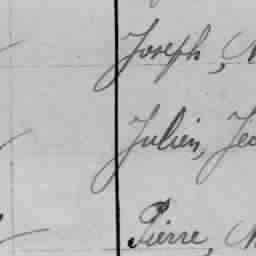 Joseph,
Julien,
Pierre,